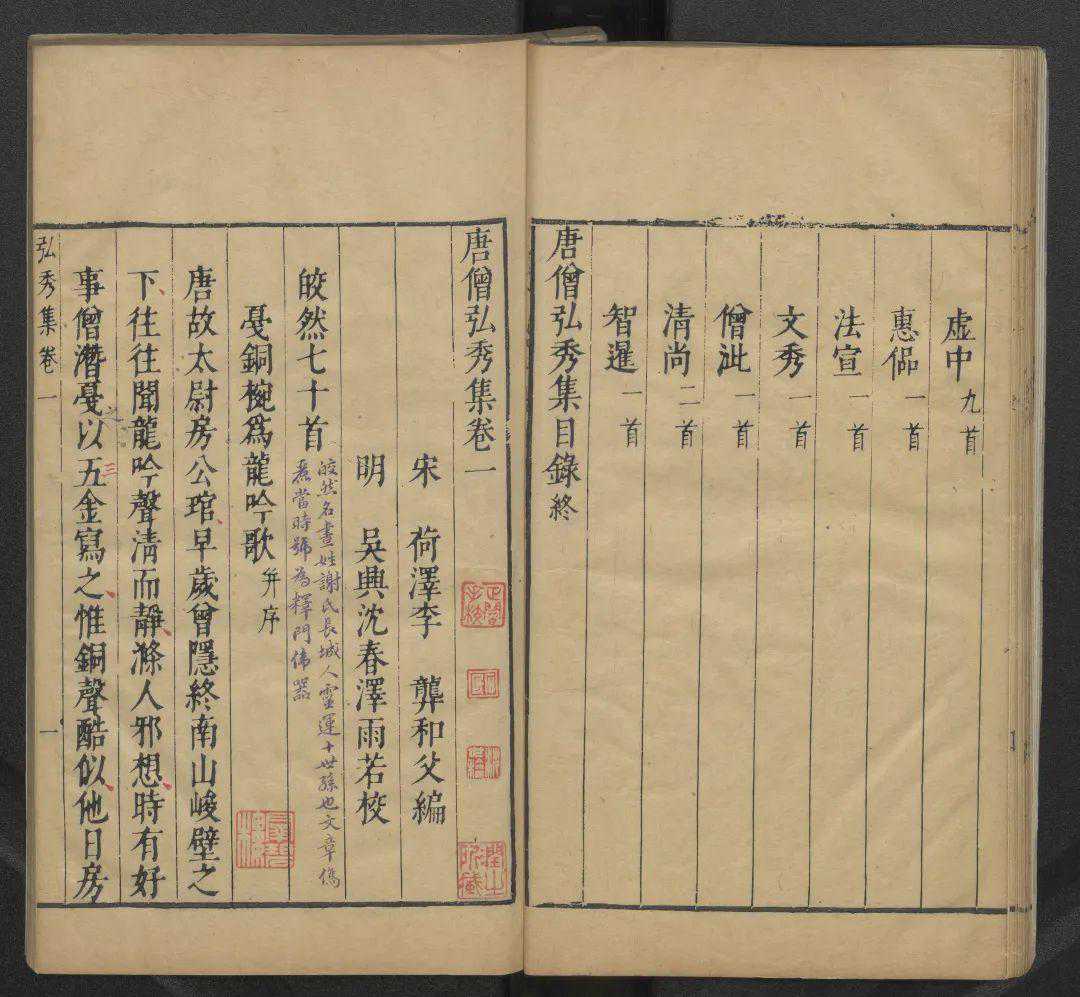 虛中 九首
惠偘 一首
法宣 一首
文秀 一首
僧泚 一首
清尚 二首
智暹 一首
唐僧弘秀集目錄終
唐僧弘秀集卷一
宋 荷澤李 龏和父編
明 吳興沈春澤雨若校
皎然七十首
皎然名晝姓謝氏長城人靈運十世孫也文章儁
麗當時號為釋門偉器
戞銅椀爲龍吟歌 并序
唐故太尉房公琯早歲曾隱終南山峻壁之
下往往聞龍吟聲清而靜滌人邪想時有好
事僧潛戞以五金寫之惟銅聲酷似他日房
弘秀集卷一 一